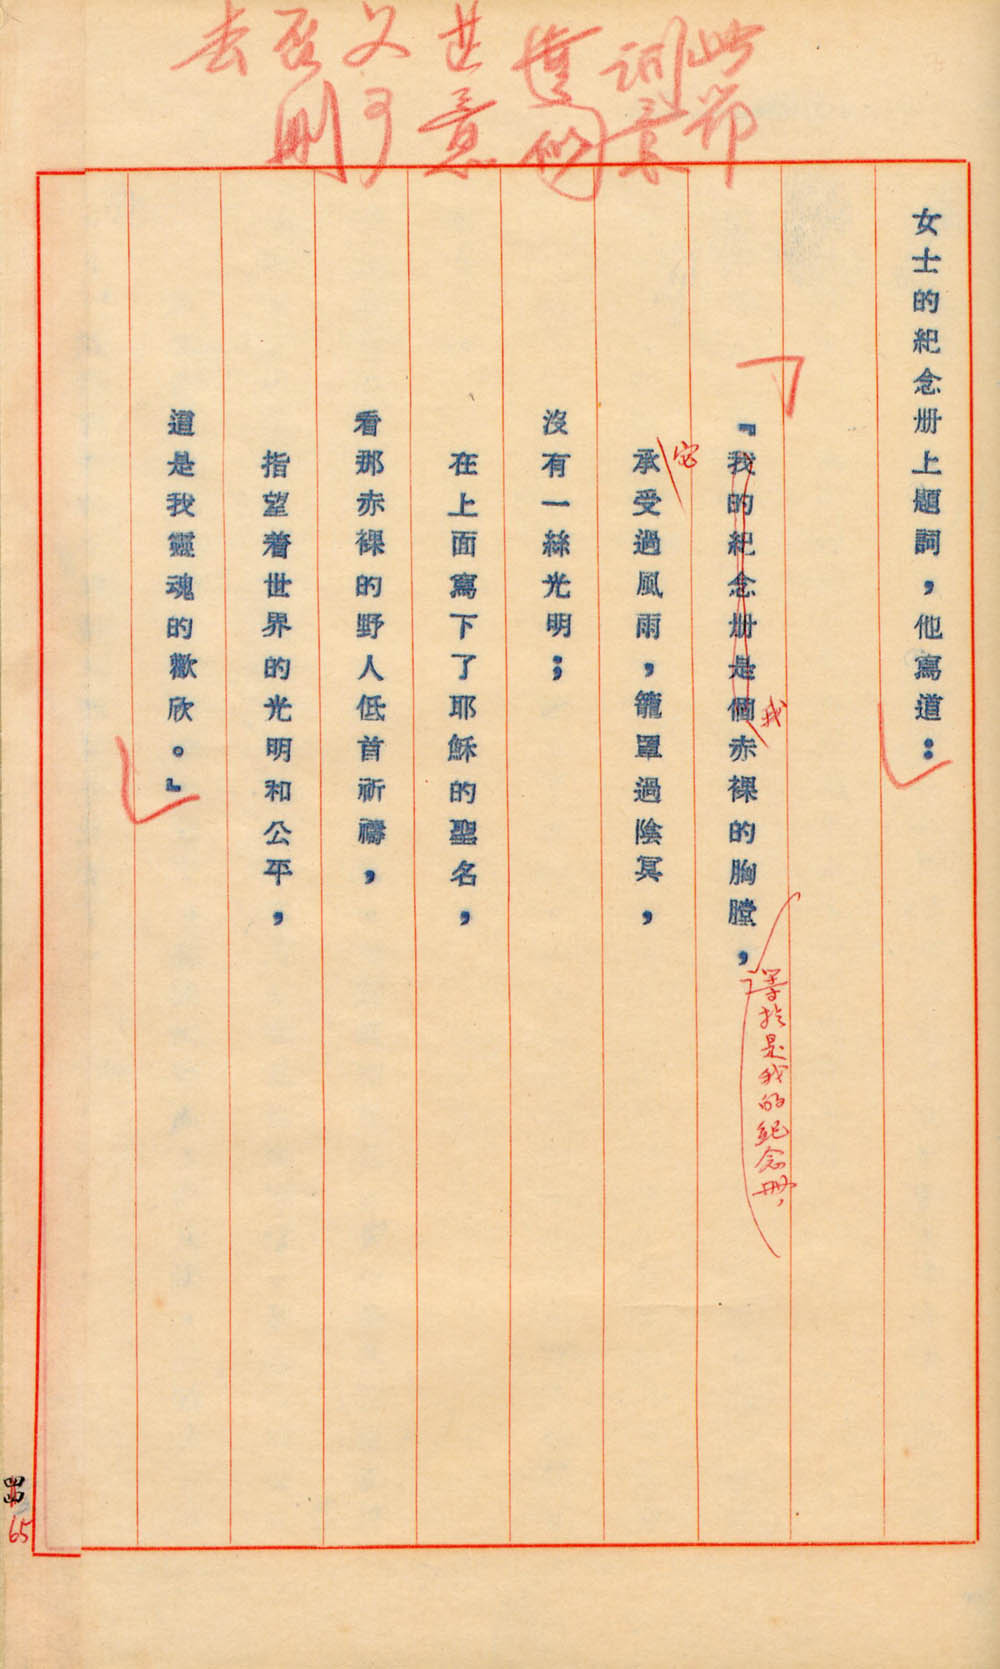 此節
意
刪
去
女士的紀念册上題詞，他寫道：
『我的紀念册是個赤裸的胸膛，
我
等於是我的紀念册，
承受過風雨，籠罩過陰冥，
它
沒有一絲光明；
在上面寫下了耶穌的聖名，
看那赤裸的野人低首祈禱，
指望着世界的光明和公平，
這是我靈魂的歡欣。』
65